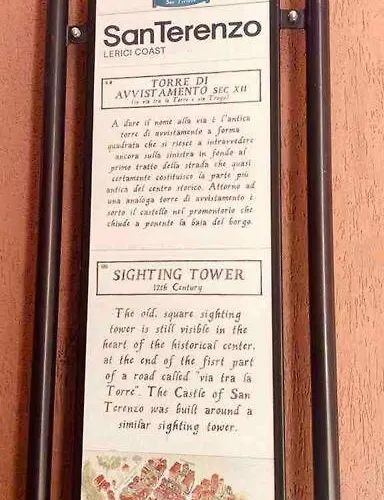 SanTerenzo
LERICI COAST
TORRE DI
AVVISTAMENTO SEC XII
(in via tra la Torre e via Trogu)
A dare il nome alla via è l'antica
torre di avvistamento a forma
quadrata che si riesce a intravvedere
ancora sulla sinistra in fondo al
primo tratto della strada che quasi
certamente costituisce la parte più
antica del centro storico. Attorno ad
una analoga torre di avvistamento è
sorto il castello nel promontorio che
chiude a ponente la baia del borgo.
SIGHTING TOWER
12th Century
The old, square sighting
tower is still visible in the
heart of the historical center,
at the end of the fisrt part
of a road called "via tra la
Torre". The Castle of San
Terenzo was built around a
similar sighting tower.